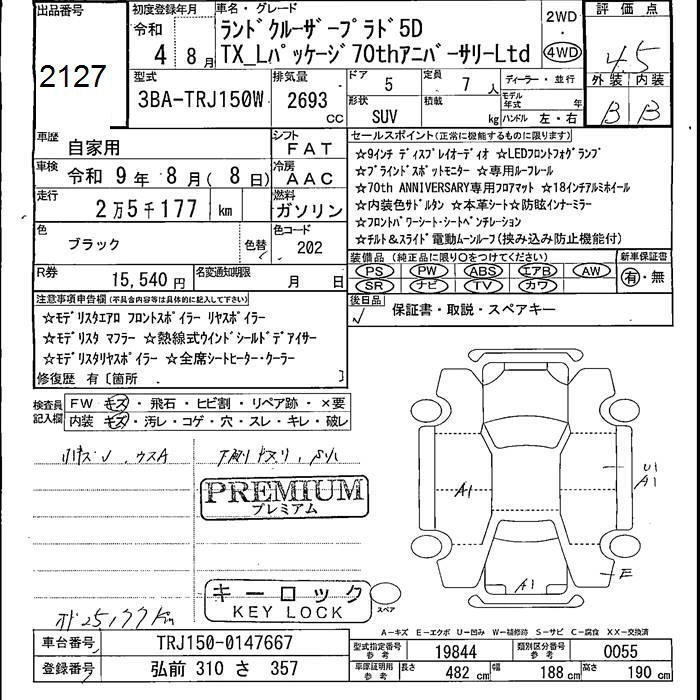 出品番号
2127
初度登録年月
令和
4 8月
車名・グレード
ランドクルーザープラド5D
TX_Lパッケージ70thアニバーサリーLtd
2WD
・
4WD
評価点
4.5
外装 内装
B B
型式
3BA-TRJ150W
排気量
2693
cc
ドア
5
定員
7 人
形状
SUV
積載
kg
ディーラー・並行
モデル年式 年
ハンドル 左・右
車歴
自家用
シフト
FAT
車検
令和 9年 8月( 8日)
冷房
AAC
走行
2万5千177 km
燃料
ガソリン
色
ブラック
色替
色コード
202
R券
15,540円
名変通知期限
月 日
セールスポイント(正常に機能するものに限ります)
☆9インチ ディスプレイオーディオ ☆LEDフロントフォグランプ
☆ブラインドスポットモニター ☆専用ルーフレール
☆70th ANNIVERSARY専用フロアマット ☆18インチアルミホイール
☆内装色サドルタン ☆本革シート☆防眩インナーミラー
☆フロントパワーシート・シートベンチレーション
☆チルト&スライド電動ムーンルーフ(挟み込み防止機能付)
装備品 (純正品に限り○をつけてください)
PS PW ABS エアB AW
SR ナビ TV カワ
新車保証書
有・無
後日品
保証書・取説・スペアキー
注意事項申告欄(不具合内容等は具体的に記入して下さい)
☆モデリスタエアロ フロントスポイラー リヤスポイラー
☆モデリスタ マフラー ☆熱線式ウインドシールドデアイサー
☆モデリスタリヤスポイラー ☆全席シートヒーター・クーラー
修復歴 有〔箇所 〕
検査員記入欄
FW キズ・飛石・ヒビ割・リペア跡・×要
内装 キズ・汚レ・コゲ・穴・スレ・キレ・破レ
PREMIUM
プレミアム
キーロック
KEY LOCK
スペア
A1
U1
A1
E
A1
A-キズ E-エクボ U-凹み W-補修跡 S-サビ C-腐食 XX-交換済
車台番号
TRJ150-0147667
登録番号
弘前 310 さ 357
型式指定番号
参考
19844
類別区分番号
参考
0055
車庫証明用
参考
長さ 482 cm 幅 188 cm 高さ 190 cm